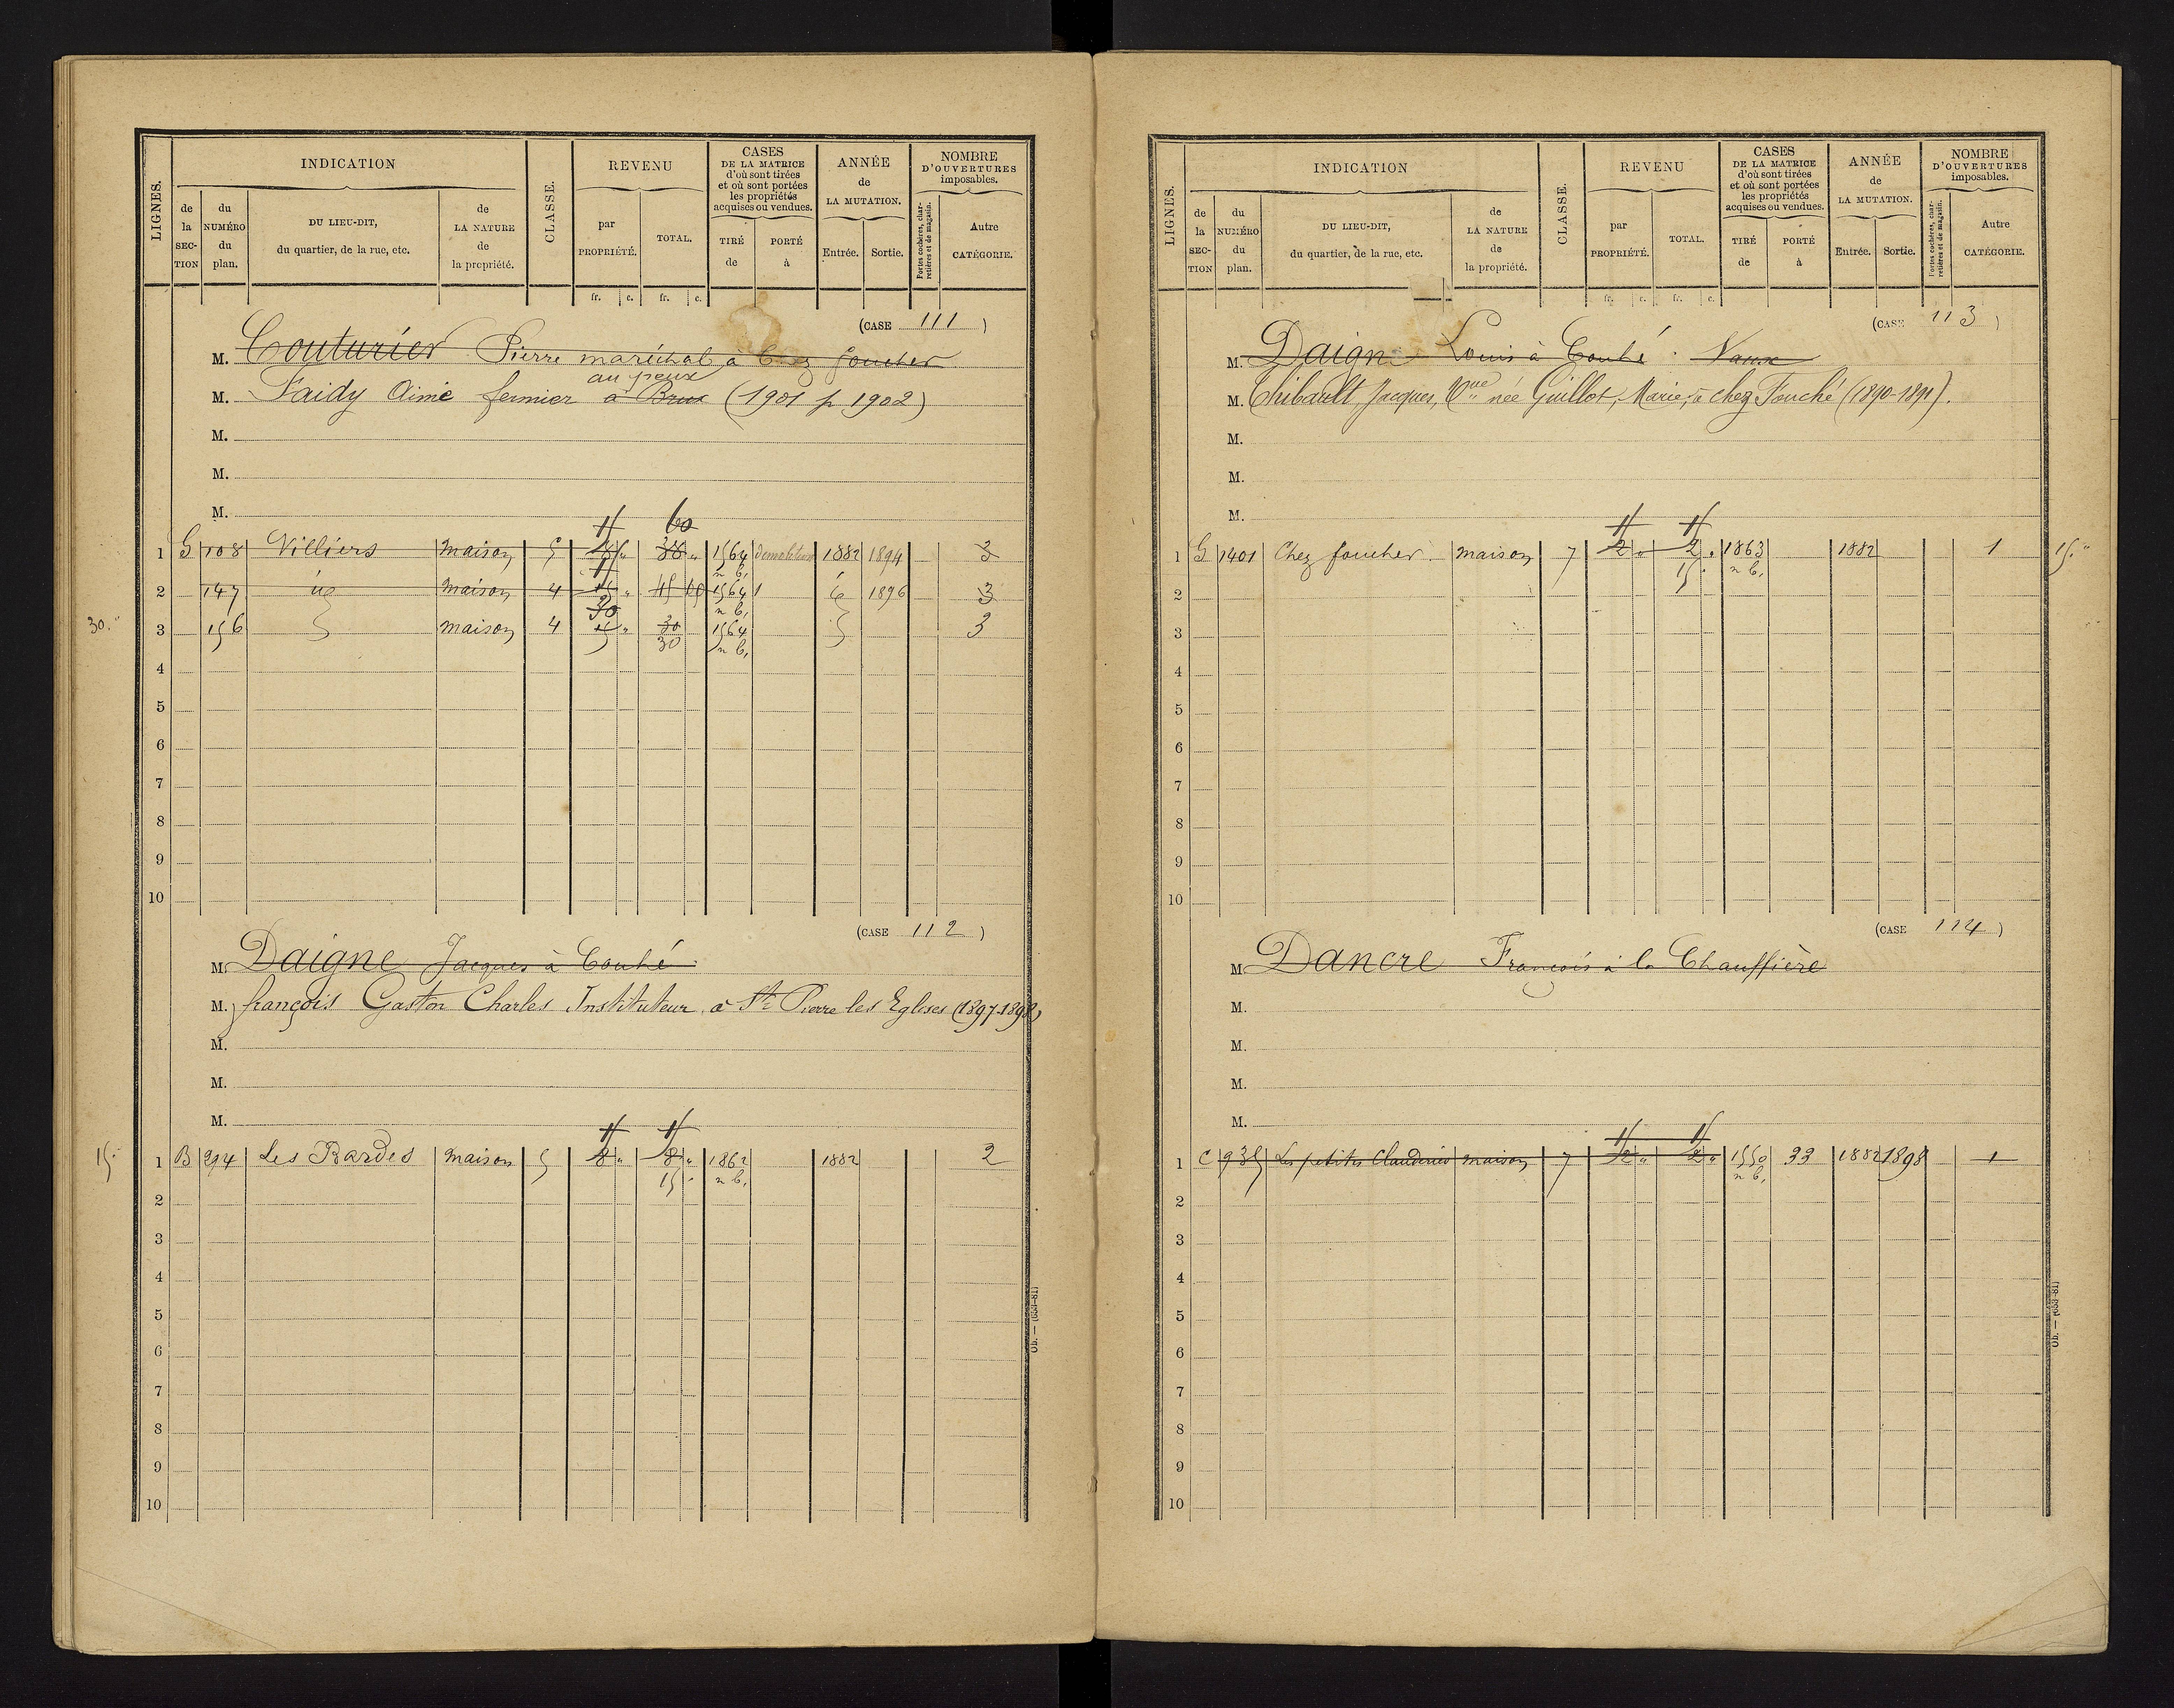 LIGNES. INDICATION CLASSE. REVENU CASES DE LA MATRICE d'où sont tirées et où sont portées les propriétés acquises ou vendues. ANNÉE de LA MUTATION. NOMBRE D'OUVERTURES imposables.
de la SECTION du NUMÉRO du plan. DU LIEU-DIT, du quartier, de la rue, etc. de LA NATURE de la propriété. par PROPRIÉTÉ. TOTAL. TIRÉ de PORTÉ à Entrée. Sortie. Portes cochères, charretières et de magasin. Autre CATÉGORIE.
fr. c. fr. c.
(CASE 111)
M. Couturier Pierre maréchal à Chez foucher
au peux
M. Faidy Aimé fermier à Brux (1901 p 1902)
M.
M.
M.
60
1 G 108 Villiers maison 5 38 1564 demolition 1882 1894 3
n b,
2 147 id maison 4 15 1564 1 id 1896 3
30 n b,
30. 3 156 maison 4 15 30 1564 3
30 n b,
4
5
6
7
8
9
10
(CASE 112)
M. Daigne Jacques à Couhé
M. françois Gaston Charles Instituteur à St Pierre les Eglises (1897-1898)
M.
M.
M.
15. 1 B 294 Les Bardes maison 5 8 8 1862 1882 2
15 n b,
2
3
4
5
6
7
8
9
10
Ob. — (653-81)
LIGNES. INDICATION CLASSE. REVENU CASES DE LA MATRICE d'où sont tirées et où sont portées les propriétés acquises ou vendues. ANNÉE de LA MUTATION. NOMBRE D'OUVERTURES imposables.
de la SECTION du NUMÉRO du plan. DU LIEU-DIT, du quartier, de la rue, etc. de LA NATURE de la propriété. par PROPRIÉTÉ. TOTAL. TIRÉ de PORTÉ à Entrée. Sortie. Portes cochères, charretières et de magasin. Autre CATÉGORIE.
fr. c. fr. c.
(CASE 113)
M. Daigne Louis à Couhé. Vaux
M. Thibault, Jacques, Vve née Guillot, Marie, à chez Fouché (1890-1891).
M.
M.
M.
1 G 1401 Chez foucher. maison 7 2 2 1863 1882 1 15.
15 n b,
2
3
4
5
6
7
8
9
10
(CASE 114)
M. Dancre François à la Chauffière
M.
M.
M.
M.
1 C 935 Les petites Claudieres maison 7 2 2 1550 33 1882 1898 1
n b,
2
3
4
5
6
7
8
9
10
Ob. — (653-81)